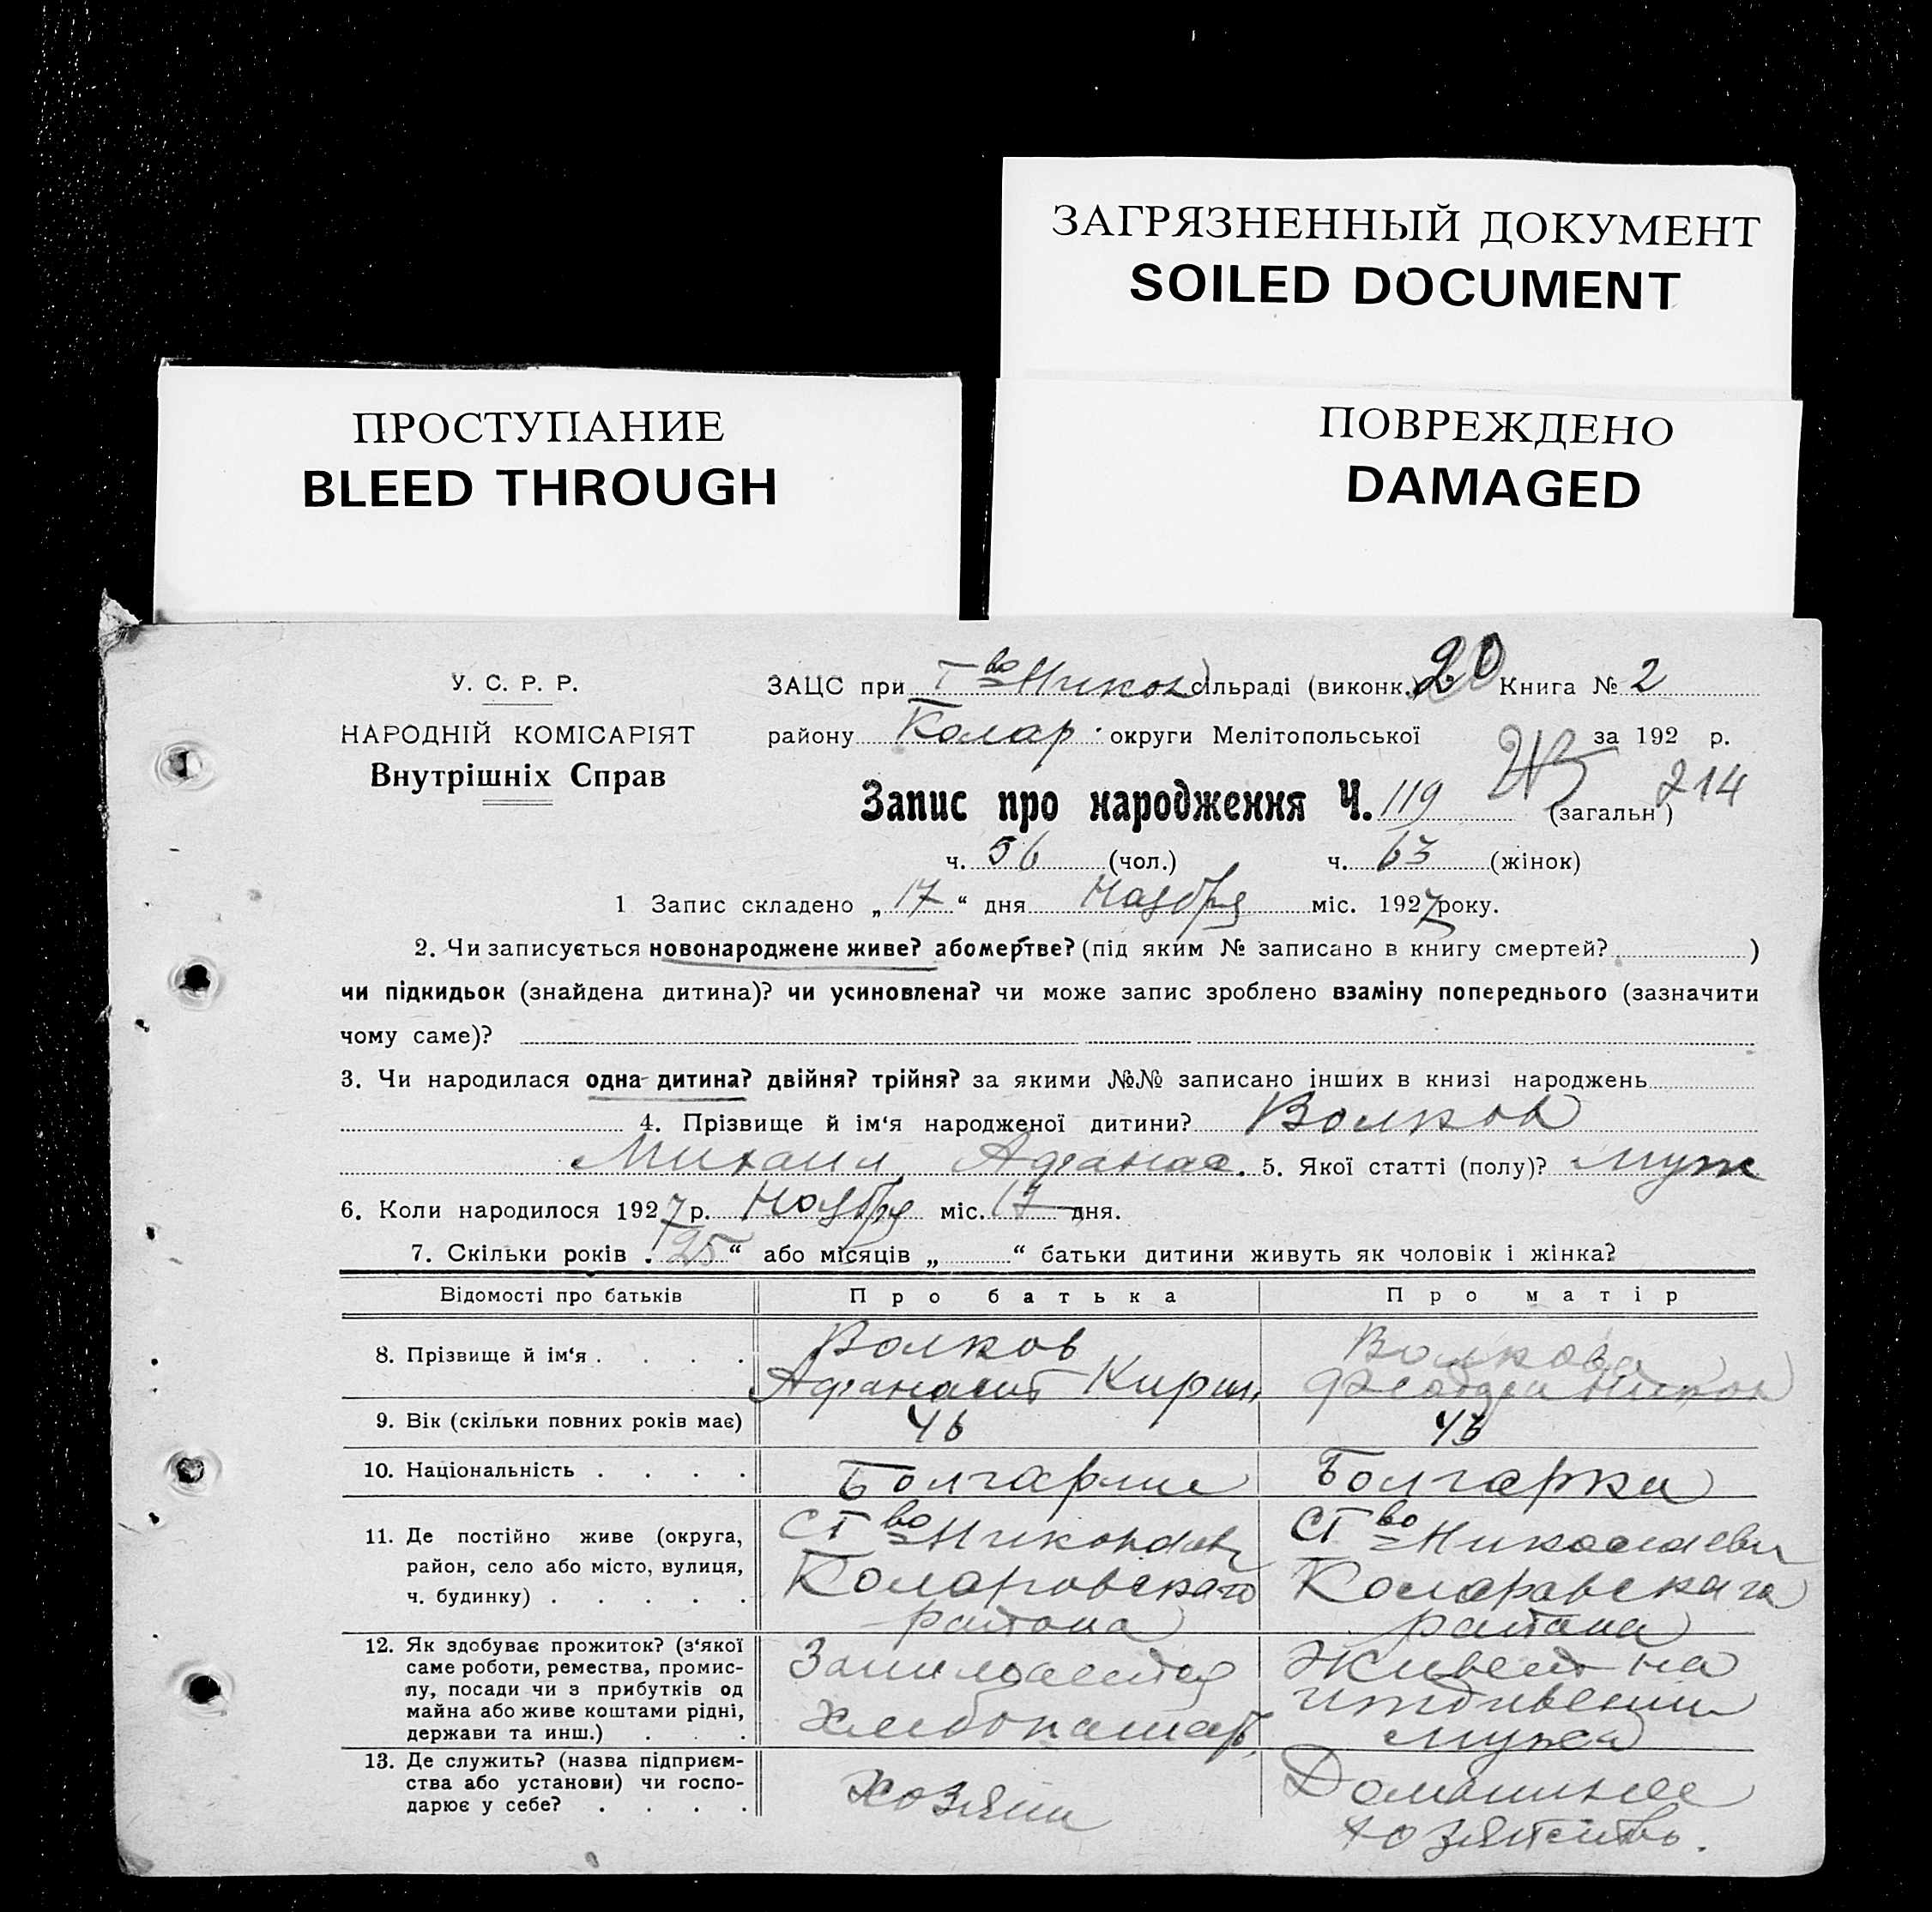 ЗАГРЯЗНЕННЫЙ ДОКУМЕНТ
SOILED DOCUMENT
ПРОСТУПАНИЕ
BLEED THROUGH
ПОВРЕЖДЕНО
DAMAGED
У. С. Р. Р.
НАРОДНІЙ КОМІСАРІЯТ
Внутрішніх Справ
ЗАЦС при сільраді (виконк.) 20 Книга № 2
району Колар. округи Мелітопольської за 192 р.
214
Запис про народження Ч. 119 (загальн)
ч. 56 (чол.) ч. 63 (жінок)
1 Запис складено „17“ дня Ноября міс. 1927 року.
2. Чи записується новонароджене живе? або мертве? (під яким № записано в книгу смертей? )
чи підкидьок (знайдена дитина)? чи усиновлена? чи може запис зроблено взаміну попереднього (зазначити
чому саме)?
3. Чи народилася одна дитина? двійня? трійня? за якими №№ записано інших в книзі народжень
4. Прізвище й ім‘я народженої дитини? Волков
Михаил Афанас. 5. Якої статті (полу)? муж
6. Коли народилося 1927 р. Ноября міс. 17 дня.
7. Скільки років „25“ або місяців „ “ батьки дитини живуть як чоловік і жінка?
Відомості про батьків Про батька Про матір
8. Прізвище й ім‘я . . . . Волков Волкова
Афанасий Кирил.
9. Вік (скільки повних років має) 46 43
10. Національність . . . . Болгарин Болгарка
11. Де постійно живе (округа,
район, село або місто, вулиця,
ч. будинку) . . . . .
Ст во
Коларовскаго
района
Ст во Николаевки
Коларавскаго
района
12. Як здобуває прожиток? (з‘якої
саме роботи, ремества, промис-
лу, посади чи з прибутків од
майна або живе коштами рідні,
держави та инш.) . . .
Занимается
хлебопашеф.
Живет на
иждивении
мужа
13. Де служить? (назва підприєм-
ства або установи) чи госпо-
дарює у себе? . . . .
Хозяин
Домашнее
хозяйство.